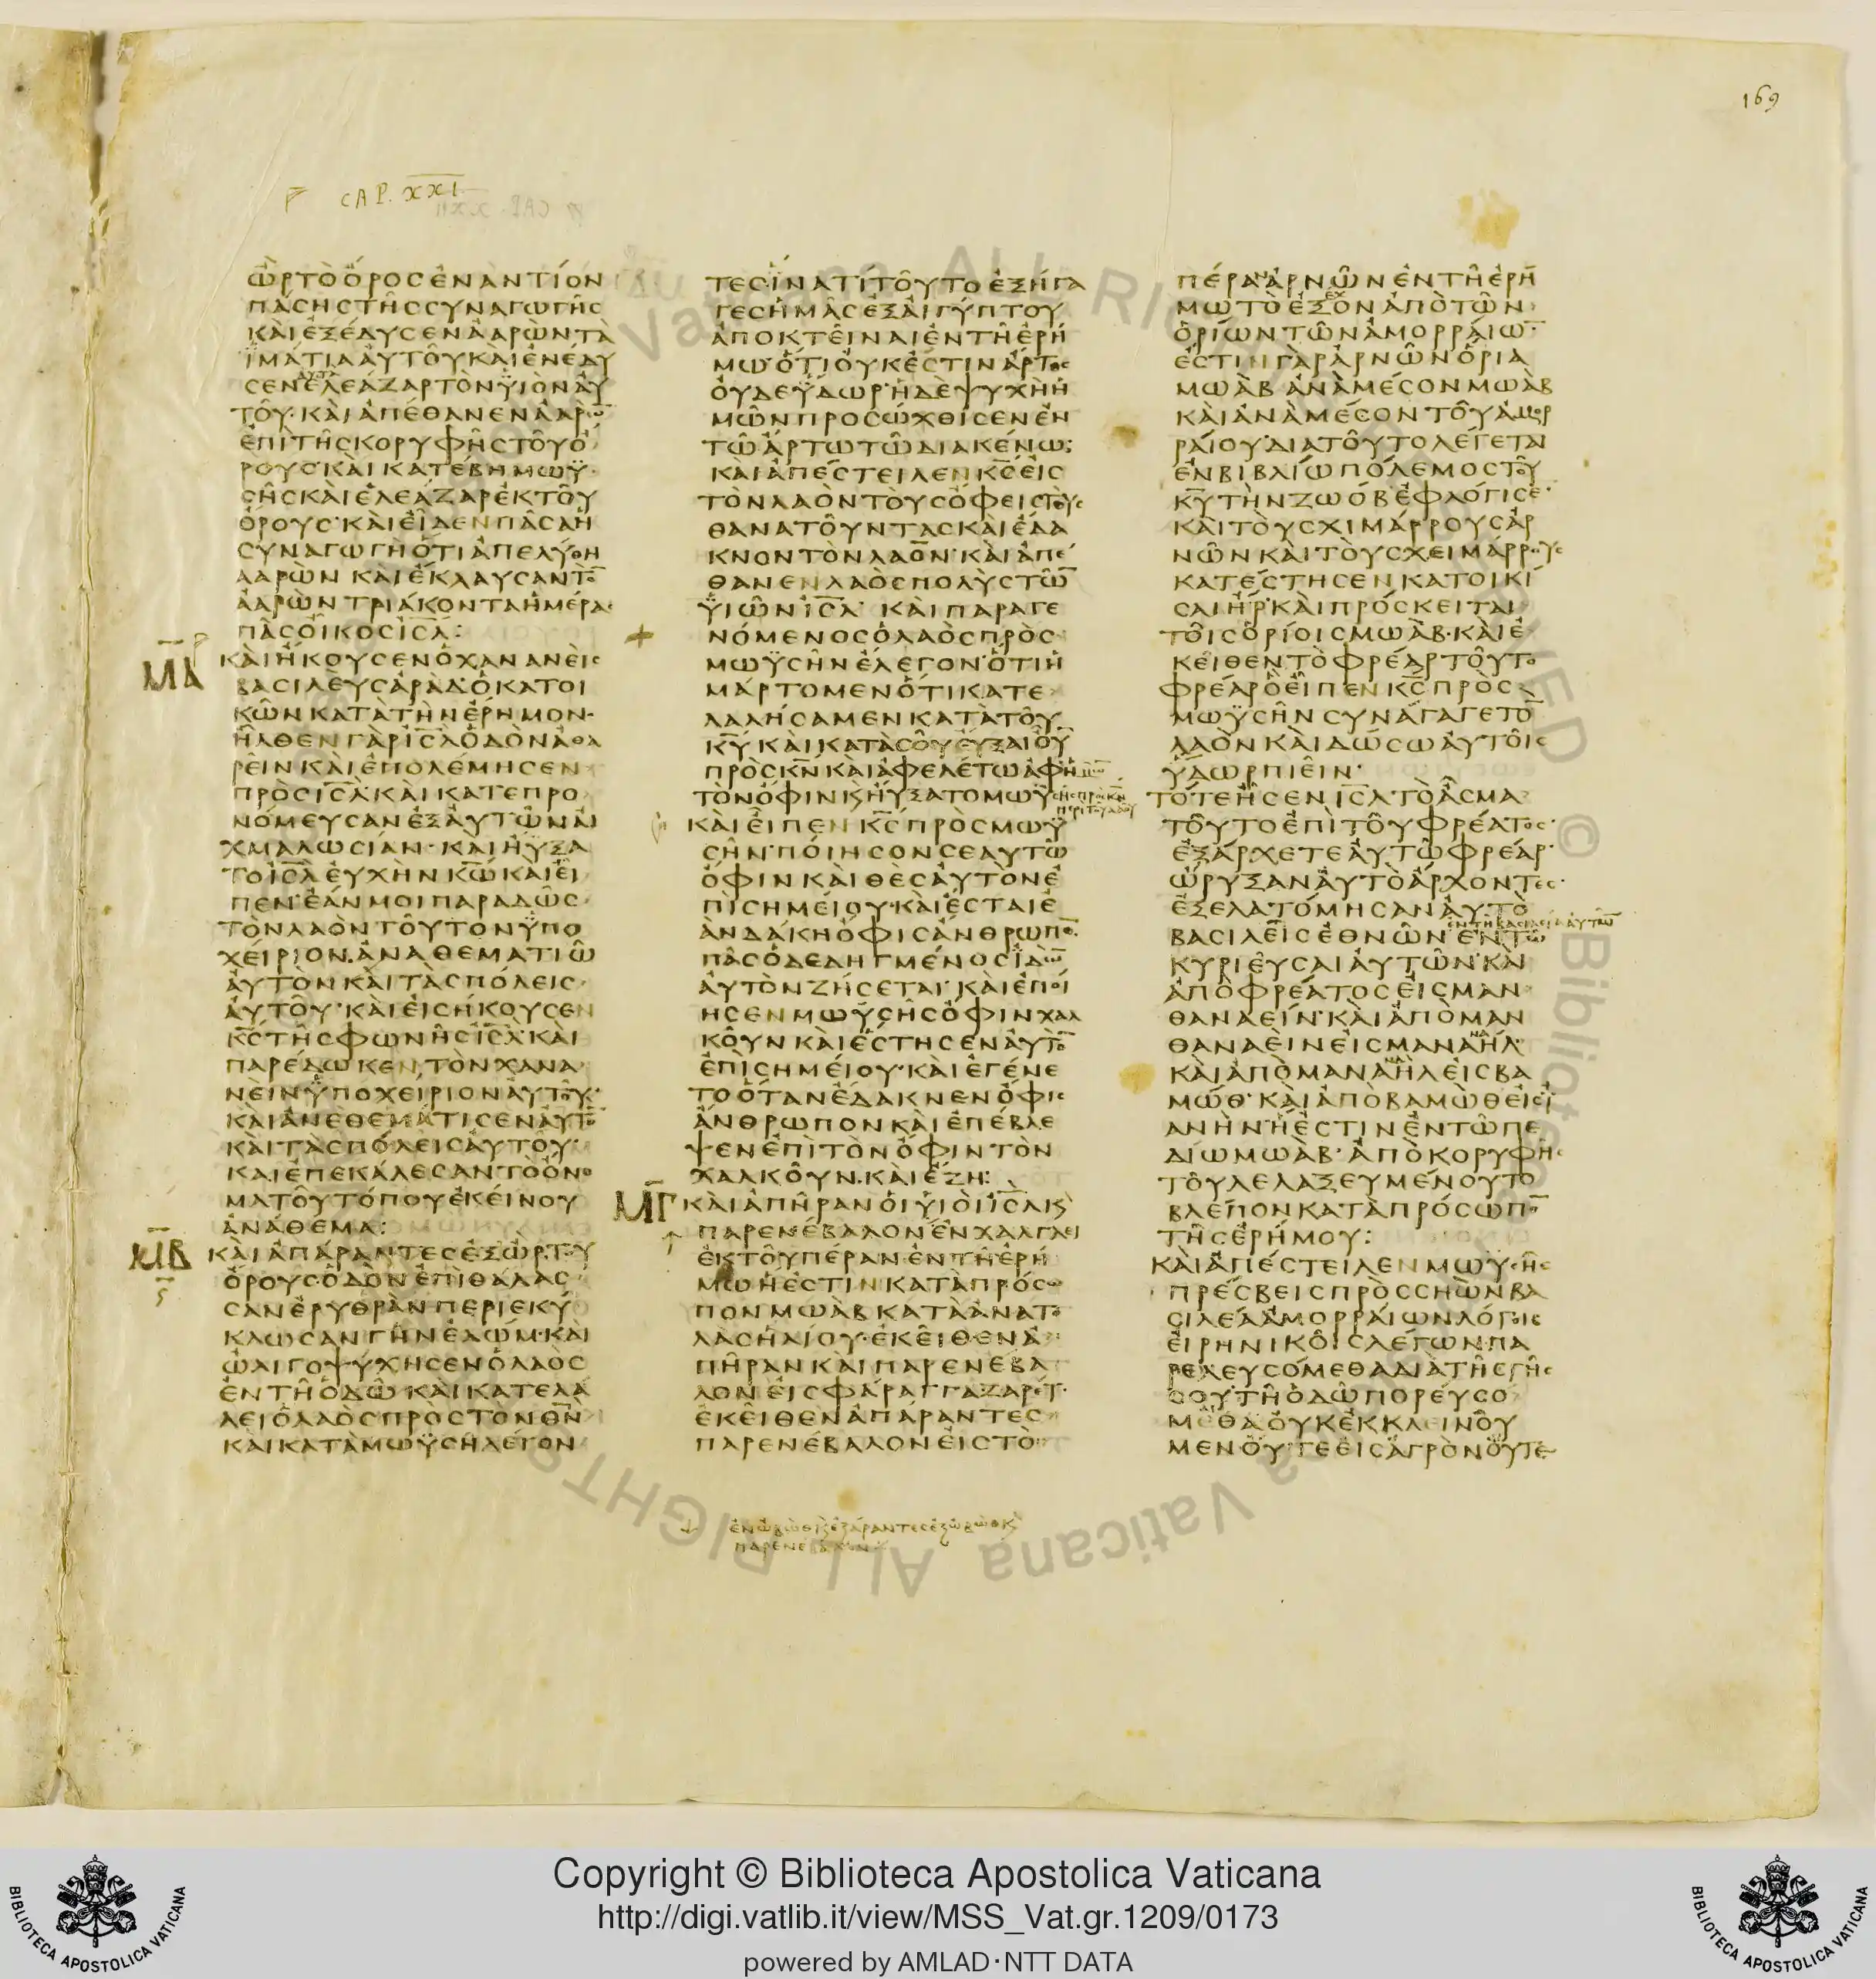 169
CAP. XXI
ὢρ τὸ ὄρος ἐναντίον
πάσης τῆς συναγωγῆς
καὶ ἐξέδυσεν ἀαρὼν τὰ
ϊμάτια ἀυτοῦ καὶ ἐνέδυ
σεν ἐλεάζαρ τὸν ϋἱὸν ἀυ
τοῦ· καὶ ἀπέθανεν ἀαρω̅
ἐπὶ τῆς κορυφῆς τοῦ ὄ
ρους· καὶ κατέβη μωϋ
σῆς καὶ ἐλεάζαρ ἐκ τοῦ
ὄρους· καὶ εἶδεν πᾶσα ἡ
συναγωγὴ ὅτι ἀπελύθη
ααρὼν καὶ ἔκλαυσαν το̅
ἀαρὼν τριάκοντα ἡμέρας
πᾶς οἶκος ι̅σ̅λ̅:
Μ̅Α̅ καὶ ἤκουσεν ὁ χανανεὶς
βασιλεὺς ἀρὰδ· ὁ κατοι
κῶν κατὰ τὴν ἔρημον·
ἦλθεν γὰρ ι̅σ̅λ̅ ὁδὸν ἀθα
ρεὶν καὶ ἐπολέμησεν
πρὸς ι̅σ̅λ̅· καὶ κατεπρο
νόμευσαν ἐξ ἀυτῶν ἀι
χμαλωσίαν· καὶ ἤυξα
το ι̅σ̅λ̅ ἐυχὴν κ̅ω̅ καὶ εἶ
πεν· ἐάν μοι παραδῶς
τὸν λαὸν τοῦτον ϋπο
χείριον. ἀναθεματιῶ
ἀυτὸν καὶ τὰς πόλεις
ἀυτοῦ· καὶ εἰσήκουσεν
κ̅ς̅ τῆς φωνῆς ι̅σ̅λ̅· καὶ
παρέδωκεν τὸν χανα
νεὶν ϋποχείριον ἀυτοῦ·
καὶ ἀνεθεμάτισεν ἀυτο̅
καὶ τὰς πόλεις ἀυτοῦ·
καὶ ἐπεκάλεσαν τὸ ὄνο
μα τοῦ τόπου ἐκείνου
ἀνάθεμα:
Μ̅Β̅ καὶ ἀπάραντες ἐξ ὢρ τοῦ
ὄρους· ὁδὸν ἐπὶ θάλας
σαν ἐρυθρὰν περιεκύ
κλωσαν γῆν ἐδώμ· καὶ
ὠλιγοψύχησεν ὁ λαὸς
ἐν τῆ ὁδῶ· καὶ κατελά
λει ὁ λαὸς πρὸς τὸν θ̅ν̅
καὶ κατὰ μωϋσῆ λέγον
τες· ἵνα τί τοῦτο ἐξήγα
γες ἡμᾶς ἐξ ἀιγύπτου
ἀποκτεῖναι ἐν τῆ ἐρή
μω· ὅτι ὀυκ ἔστιν ἄρτος
ὀυδὲ ϋδωρ· ἡ δὲ ψυχὴ ἡ
μῶν προσώχθισεν ἐν
τῶ ἄρτω τῶ διακένω;
καὶ ἀπέστειλεν κ̅ς̅ εἰς
τὸν λαὸν τοὺς ὄφεις τοὺς
θανατοῦντας καὶ ἔδα
κνον τὸν λαόν· καὶ ἀπέ
θανεν λαὸς πολὺς τῶ̅
ϋἱῶν ι̅σ̅λ̅ καὶ παραγε
νόμενος ὁ λαὸς πρὸς
μωϋσῆν ἔλεγον· ὅτι ἡ
μάρτομεν ὅτι κατε
λαλήσαμεν κατὰ τοῦ
κ̅υ̅ καὶ κατὰ σοῦ ἔυξαι ὀῦ̅
πρὸς κ̅ν̅ καὶ ἀφελέτω ἀφ ἡμῶ̅
τὸν ὄφιν κ̀ ἤυξατο μωϋσῆς πρὸς κ̅ν̅
περὶ τοῦ λαοῦ
καὶ εἶπεν κ̅ς̅ πρὸς μωϋ
σῆν· ποίησον σεαυτῶ
ὄφιν καὶ θὲς ἀυτὸν ἐ
πὶ σημείου· καὶ ἔσται ἐ
ὰν δάκη ὄφις ἄνθρωπο̅·
πᾶς ὁ δεδηγμένος ϊδὼ̅
ἀυτὸν ζήσεται· καὶ ἐποί
ησεν μωϋσῆς ὄφιν χαλ
κοῦν καὶ ἔστησεν ἀυτο̅
ἐπὶ σημείου· καὶ ἐγένε
το ὅταν ἔδακνεν ὄφις
ἄνθρωπον καὶ ἐπέβλε
ψεν ἐπὶ τὸν ὄφιν τὸν
χαλκοῦν. καὶ ἔζη:
Μ̅Γ̅ καὶ ἀπῆραν ὁι ϋἱοὶ ι̅σ̅λ̅ κ̀
παρενέβαλον ἐν χαλγλει
ἐκ τοῦ πέραν ἐν τῆ ἐρή
μω ἥ ἐστιν κατὰ πρόσω
πον μωὰβ κατὰ ἀνατο
λὰς ἡλίου· ἐκεῖθεν ἀ
πῆραν καὶ παρενέβα
λον εἰς φάραγγα ζαρέτ·
ἐκεῖθεν ἀπάραντες
παρενέβαλον εἰς τὸ
πέραν ἀρνῶν ἐν τῆ ἐρή
μω τὸ ἐξέχον ἀπὸ τῶν
ὁρίων τῶν ἀμορραίω̅·
ἔστιν γὰρ ἀρνῶν ὅρια
μωὰβ ἀνὰ μέσον μωὰβ
καὶ ἀνὰ μέσον τοῦ ἀμορ
ραίου· διὰ τοῦτο λέγεται
ἐν βιβλίω πόλεμος τοῦ
κ̅υ̅ τὴν ζωὸβ ἐφλόγισε·
καὶ τοὺς χιμάρρους ἀρ
νῶν καὶ τοὺς χειμάρρους
κατέστησεν κατοικί
σαι ἤρ· καὶ πρόσκειται
τοῖς ὁρίοις μωὰβ· καὶ ἐ
κεῖθεν τὸ φρέαρ τοῦτο
φρέαρ ὃ εἶπεν κ̅ς̅ πρὸς
μωϋσῆν συνάγαγε το̅
λαὸν καὶ δώσω ἀυτοῖς
ϋδωρ πιεῖν·
τότε ἦσεν ι̅σ̅λ̅ τὸ ἆσμα
τοῦτο ἐπὶ τοῦ φρέατος·
ἐξάρχετε ἀυτῶ φρέαρ·
ὤρυξαν ἀυτὸ ἄρχοντες·
ἐξελατόμησαν ἀυτὸ
βασιλεῖς ἐθνῶν· ἐν τῆ βασιλεία ἀυτῶ̅ ἐν τῶ
κυριεῦσαι ἀυτῶν· καὶ
ἀπὸ φρέατος εἰς μαν
θαναείν· καὶ ἀπὸ μαν
θαναεὶν εἰς μαναήλ·
καὶ ἀπὸ μαναὴλ εἰς βα
μώθ· καὶ ἀπὸ βαμὼθ εἰς ϊ
ανὴν· ἥ ἐστιν ἐν τῶ πε
δίω μωὰβ· ἀπὸ κορυφῆς
τοῦ λελαξευμένου τὸ
βλέπον κατὰ πρόσωπο̅
τῆς ἐρήμου:
καὶ ἀπέστειλεν μωϋσῆς
πρέσβεις πρὸς σηὼν βα
σιλέα ἀμορραίων λόγοις
εἰρηνικοῖς λέγων· πα
ρελευσόμεθα διὰ τῆς γῆς
σου· τῆ ὁδῶ πορευσό
μεθα ὀυκ ἐκκλεινοῦ
μεν ὄυτε εἰς ἀγρὸν ὄυτε
ἐν ὠβὼθ κ̀ ἐξάραντες ἐξ ὠβὼθ κ̀
παρενέβαλον
Copyright © Biblioteca Apostolica Vaticana
http://digi.vatlib.it/view/MSS_Vat.gr.1209/0173
powered by AMLAD·NTT DATA
BIBLIOTECA APOSTOLICA VATICANA
BIBLIOTECA APOSTOLICA VATICANA